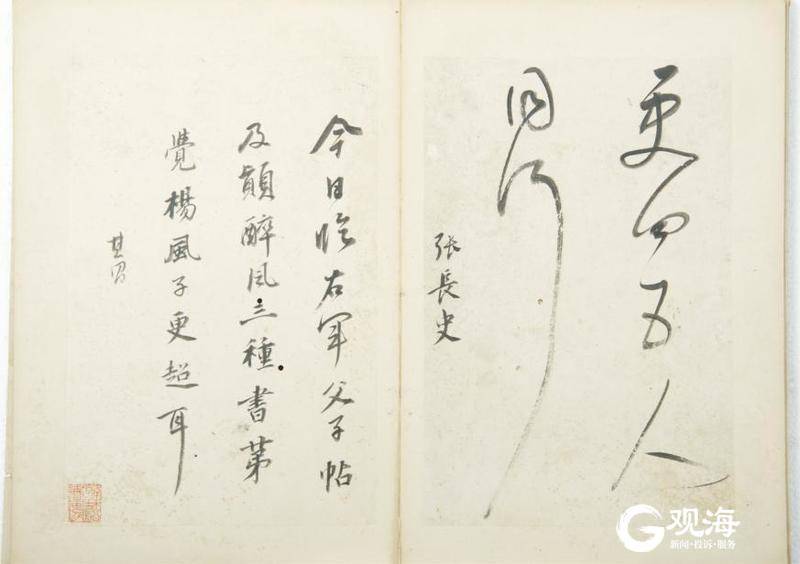 更四五人
同行
張長史
今日臨右軍父子帖
及顛醉風三種書第
覺楊風子更超耳
其昌
观海
新闻·投诉·服务